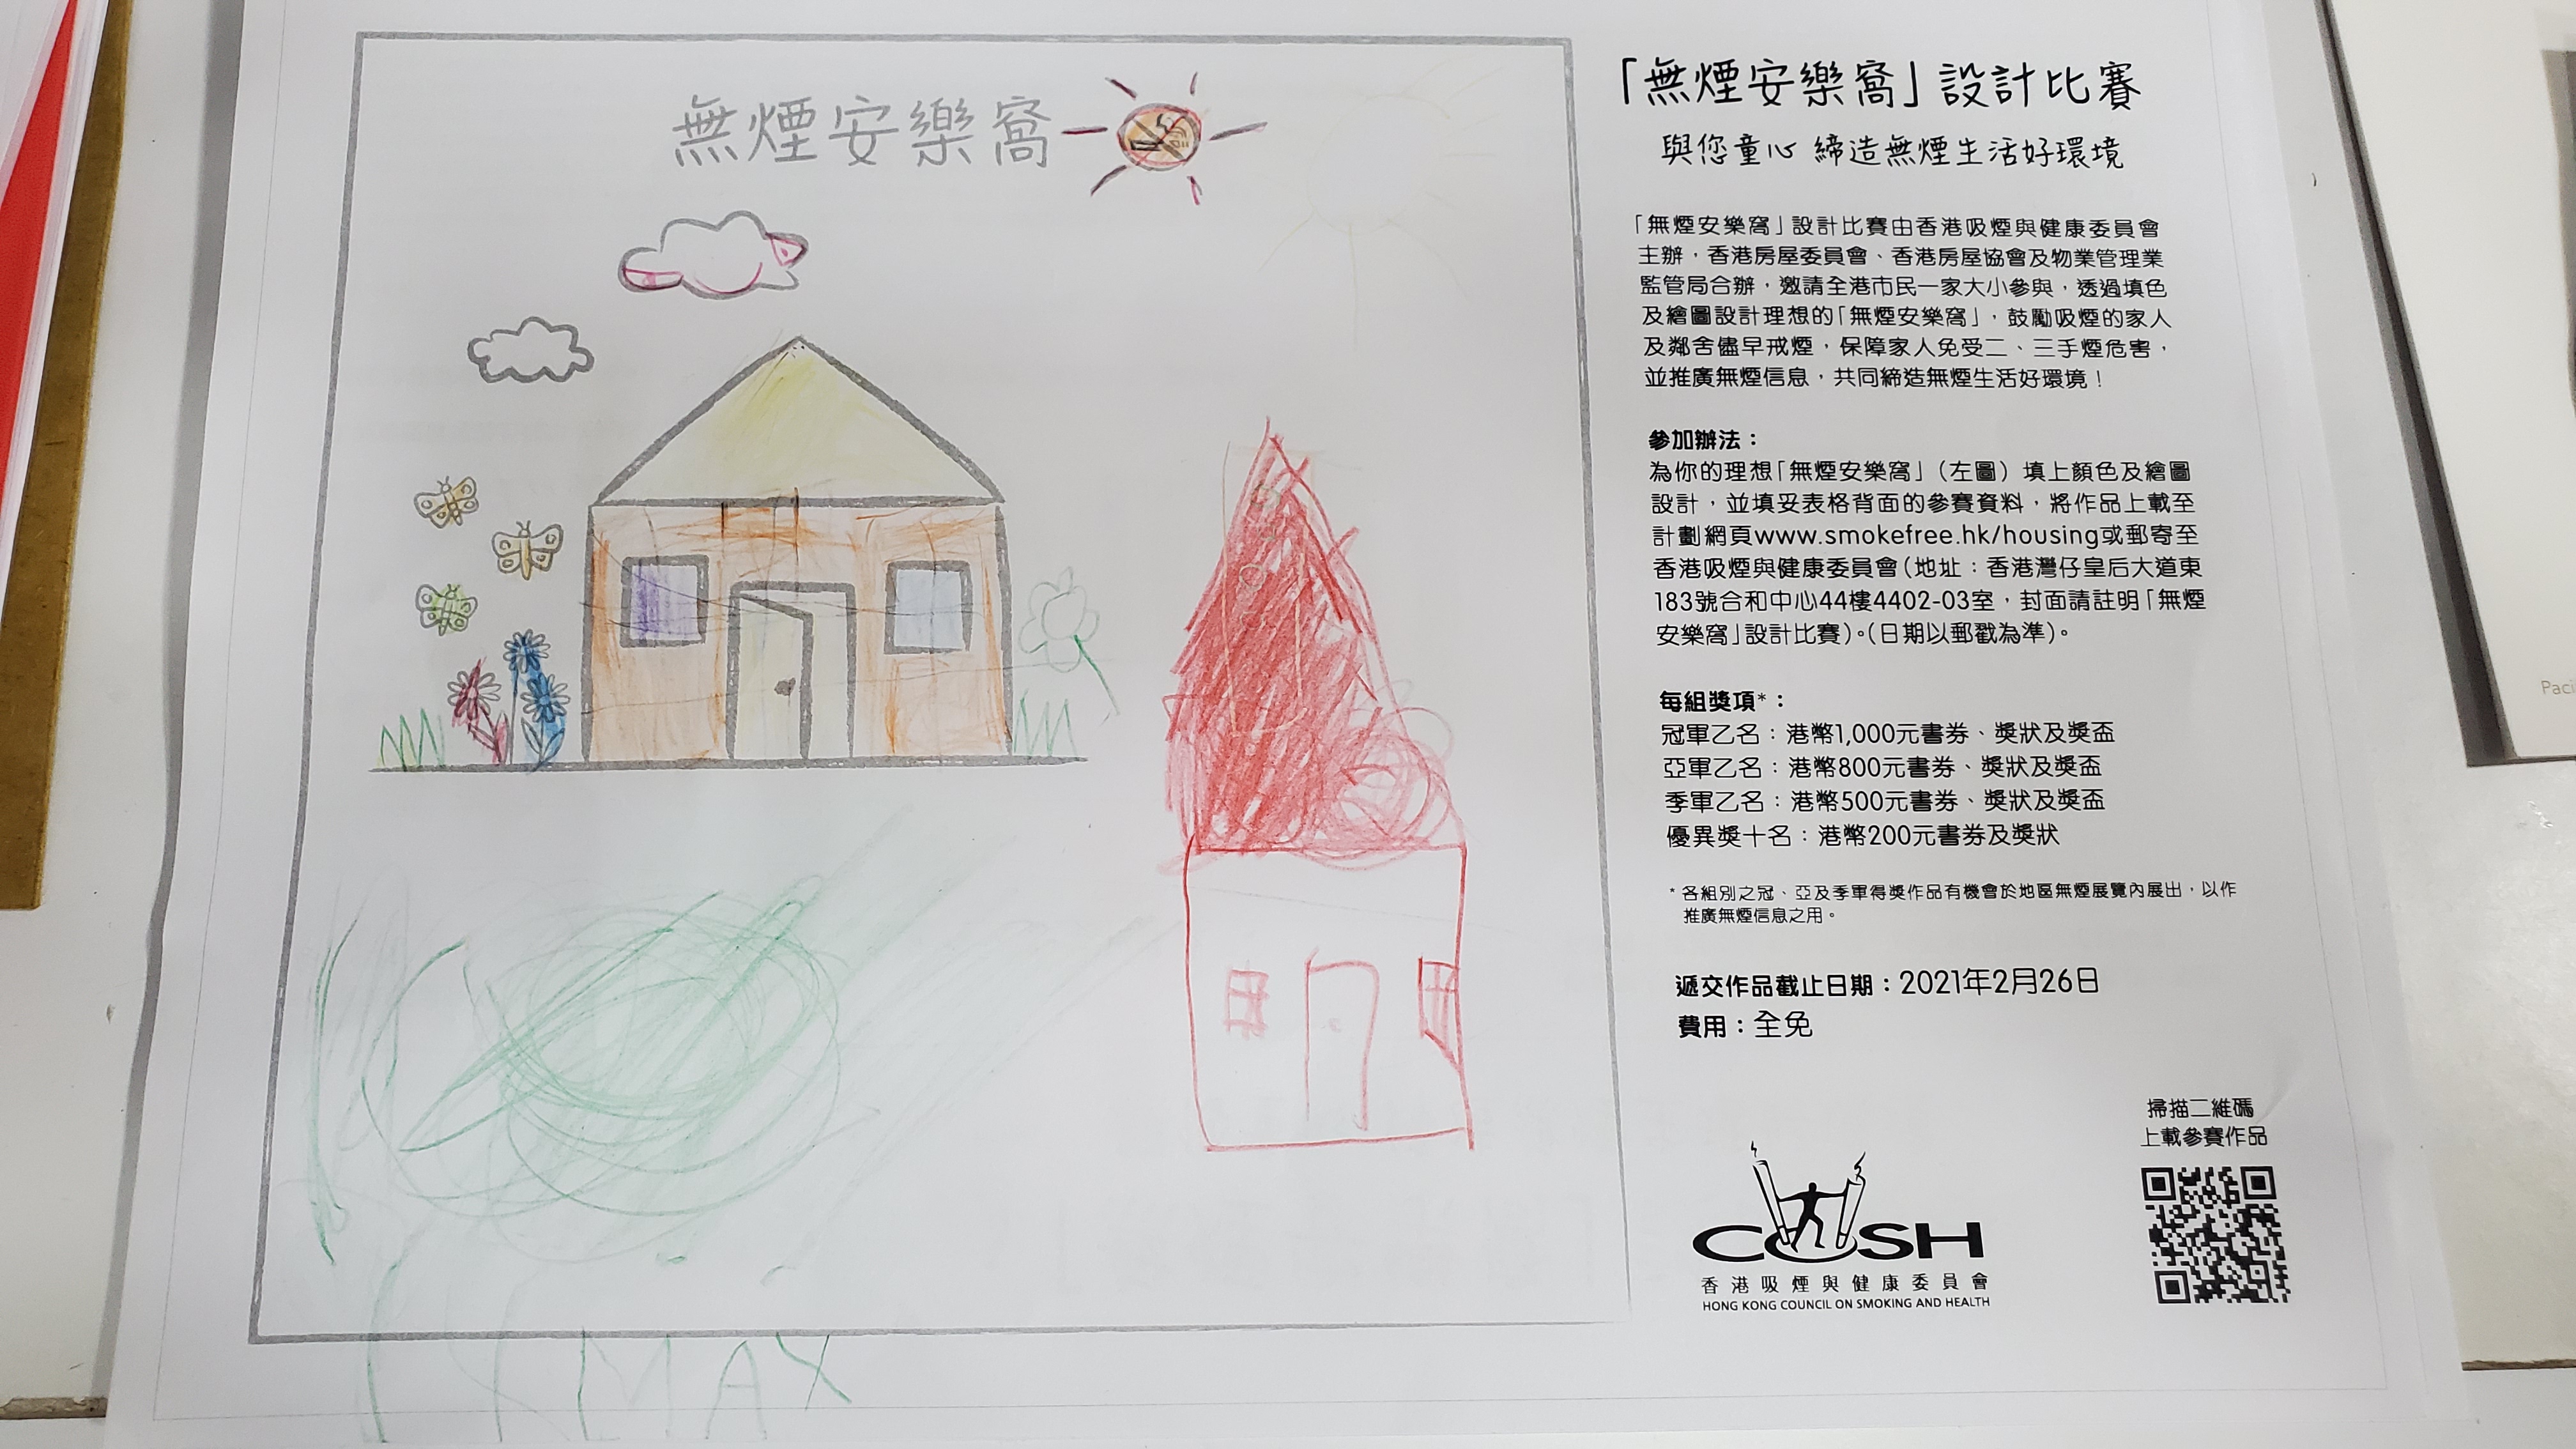 無煙安樂窩
MAX
「無煙安樂窩」設計比賽
與您童心 締造無煙生活好環境
「無煙安樂窩」設計比賽由香港吸煙與健康委員會
主辦，香港房屋委員會、香港房屋協會及物業管理業
監管局合辦，邀請全港市民一家大小參與，透過填色
及繪圖設計理想的「無煙安樂窩」，鼓勵吸煙的家人
及鄰舍儘早戒煙，保障家人免受二、三手煙危害，
並推廣無煙信息，共同締造無煙生活好環境！
參加辦法：
為你的理想「無煙安樂窩」（左圖）填上顏色及繪圖
設計，並填妥表格背面的參賽資料，將作品上載至
計劃網頁www.smokefree.hk/housing或郵寄至
香港吸煙與健康委員會（地址：香港灣仔皇后大道東
183號合和中心44樓4402-03室，封面請註明「無煙
安樂窩」設計比賽）。（日期以郵戳為準）。
每組獎項*：
冠軍乙名：港幣1,000元書券、獎狀及獎盃
亞軍乙名：港幣800元書券、獎狀及獎盃
季軍乙名：港幣500元書券、獎狀及獎盃
優異獎十名：港幣200元書券及獎狀
* 各組別之冠、亞及季軍得獎作品有機會於地區無煙展覽內展出，以作
推廣無煙信息之用。
遞交作品截止日期：2021年2月26日
費用：全免
掃描二維碼
上載參賽作品
COSH
香港吸煙與健康委員會
HONG KONG COUNCIL ON SMOKING AND HEALTH
Paci